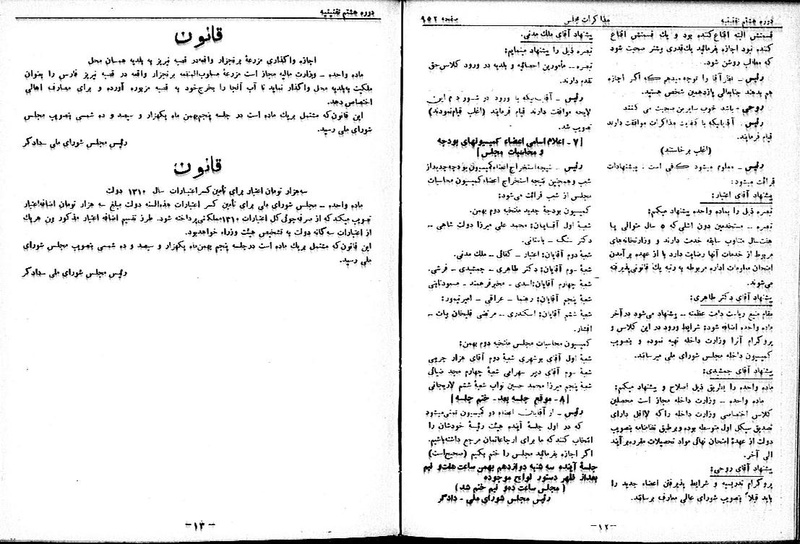 دوره هشتم تقنینیه
مذاکرات مجلس
صفحه ۹۵۲
قسمتش البته اقناع کننده بود و یك قسمتش اقناع
کننده نبود اجازه بفرمائید یك قدری بیشتر صحبت شود
که مطالب روشن شود.
رئیس ـ نظر آقا را توجه میدهم که اگر اجازه
هم بدهند جنابعالی پانزدهمین شخص هستید.
روحی ـ باشد خوب سایرین صحبت می کنند
رئیس ـ آقایانیکه با کفایت مذاکرات موافقت دارند
قیام فرمایند.
(اغلب برخاستند)
رئیس ـ معلوم میشود کافی است، پیشنهادات
قرائت میشود:
پیشنهاد آقای اعتبار:
تبصره ذیل را بماده واحده پیشنهاد میکنم:
تبصره ـ مستخدمین دون اشلی که ۵ سال متوالی یا
هشت سال متناوب سابقه خدمت دارند و وزارتخانه‌های
مربوط از خدمات آنها رضایت دارد با از عهده برآمدن
امتحان معلومات اداره مربوطه به رتبه یك قانونی پذیرفته
می‌شوند.
پیشنهاد آقای دکتر طاهری:
مقام منیع ریاست دامت عظمته ـ پیشنهاد می‌شود در آخر
ماده واحده اضافه شود: شرایط ورود در این کلاس و
پروگرام آنرا وزارت داخله تهیه نموده و بتصویب
کمیسیون داخله مجلس شورای ملی میرساند.
پیشنهاد آقای جمشیدی:
ماده واحده را بطریق ذیل اصلاح و پیشنهاد میکنم:
ماده واحده ـ وزارت داخله مجاز است محصلین
کلاس اختصاصی وزارت داخله را که لااقل دارای
تصدیق سیکل اول متوسطه بوده و بر طبق نظامنامه بتصویب
دولت از عهدهٔ امتحان نهائی مواد تحصیلات مقرره برآیند
الی آخر.
پیشنهاد آقای روحی:
پروگرام تدریسیه و شرایط پذیرفتن اعضاء جدید را
باید قبلاً بتصویب شورای عالی معارف برسانند.
پیشنهاد آقای ملك مدنی.
تبصره ذیل را پیشنهاد مینمایم:
تبصره ـ مأمورین احصائیه و بلدیه در ورود کلاس حق
تقدم دارند.
رئیس ـ آقایانیکه با ورود در شور دوم این
لایحه موافقت دارند قیام فرمایند (اغلب قیام نمودند)
تصویب شد.
[۷ ـ اعلام اسامی اعضاء کمیسیونهای بودجه
و محاسبات مجلس]
رئیس ـ نتیجه استخراج اعضاء کمیسیون بودجه جدید از
شعب و همچنین نتیجه استخراج اعضاء کمیسیون محاسبات
مجلس از شعب قرائت می‌شود:
کمیسیون بودجهٔ جدید منتخبه دوم بهمن.
شعبهٔ اول آقایان: محمد علی میرزا دولت شاهی ـ
دکتر سنگ ـ باستانی.
شعبهٔ دوم آقایان: اعتبار ـ کفائی ـ ملك مدنی.
شعبهٔ سوم آقایان: دکتر طاهری ـ جمشیدی ـ فرشی.
شعبهٔ چهارم آقایان: اسدی ـ مخبر فرهمند ـ مسعود ثابتی
شعبهٔ پنجم آقایان: رهنما ـ عراقی ـ امیر تیمور:
شعبهٔ ششم آقایان: اسکندری ـ مرتضی قلیخان بیات ـ
افشار.
کمیسیون محاسبات مجلس منتخبه دوم بهمن:
شعبهٔ اول آقای بوشهری شعبهٔ دوم آقای هزار جریبی
شعبهٔ سوم آقای دبیر سهرابی شعبهٔ چهارم مجد ضیائی
شعبهٔ پنجم میرزا محمد حسین نواب شعبهٔ ششم لاریجانی
[۸ ـ موقع جلسه بعد ـ ختم جلسه]
رئیس ـ از آقایان اعضاء دو کمیسیون تمنی میشود
که در اول جلسهٔ آینده هیئت رئیسهٔ خودشان را
انتخاب کنند که ما برای ارجاعاتمان مرجع داشته باشیم.
اگر اجازه بفرمائید مجلس را ختم بکنیم (صحیح است)
جلسهٔ آینده سه شنبه دوازدهم بهمن ساعت هفت و نیم
بعد از ظهر دستور لوایح موجوده
(مجلس ساعت ده و نیم ختم شد)
رئیس مجلس شورای ملی ـ دادگر
ـ۱۲ـ
دوره هشتم تقنینیه
قانون
اجازه واگذاری مزرعهٔ برنجزار واقعه در قصبه نیریز به بلدیه همان محل
ماده واحده ـ وزارت مالیه مجاز است مزرعهٔ مسلوب‌المنفعه برنجزار واقعه در قصبه نیریز فارس را بعنوان
ملکیت به بلدیه محل واگذار نماید تا آب آنجا را بخرج خود به قصبه مزبوره آورده و برای مصارف اهالی
اختصاص دهد.
این قانون که مشتمل بر یك ماده است در جلسه پنجم بهمن ماه یکهزار و سیصد و ده شمسی بتصویب مجلس
شورای ملی رسید.
رئیس مجلس شورای ملی ـ دادگر
قانون
سه هزار تومان اعتبار برای تأمین کسر اعتبارات سال ۱۳۱۰ دولت
ماده واحده ـ مجلس شورای ملی برای تأمین کسر اعتبارات هذه‌السنه دولت مبلغ سه هزار تومان اضافه اعتبار
تصویب میکند که از صرفه جوئی کل اعتبارات ۱۳۱۰ مملکتی پرداخته شود. طرز تقسیم اضافه اعتبار مذکور بین هر یك
از اعتبارات سه گانه دولت به تشخیص هیئت وزراء خواهد بود.
این قانون که مشتمل بر یك ماده است در جلسه پنجم بهمن ماه یکهزار و سیصد و ده شمسی بتصویب مجلس شورای
ملی رسید.
رئیس مجلس شورای ملی ـ دادگر
ـ۱۳ـ